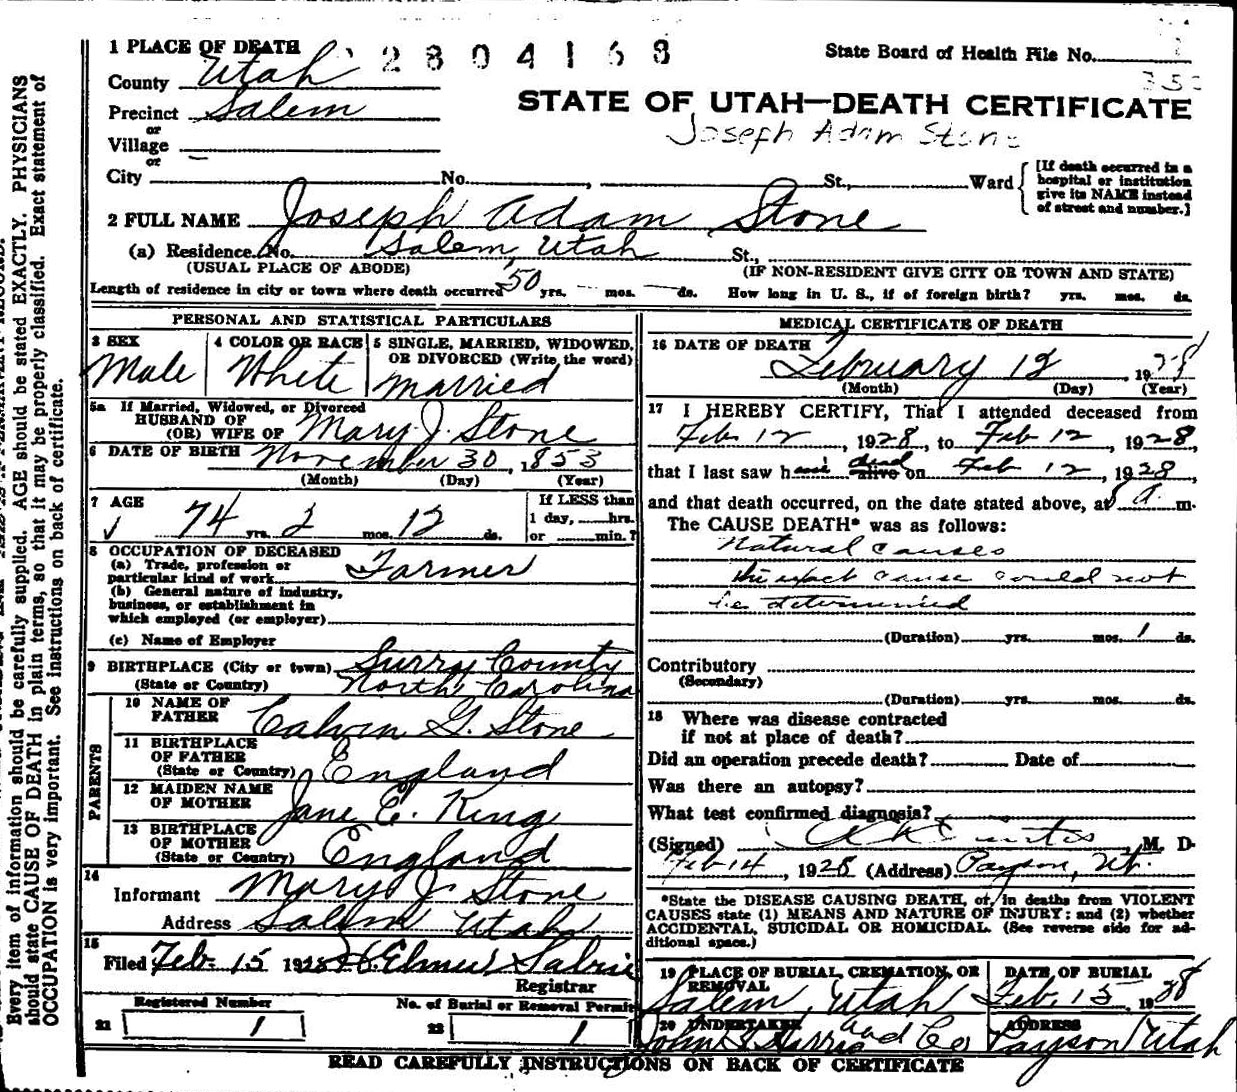 1 PLACE OF DEATH 2804168 State Board of Health File No.
County Utah
353
Precinct Salem STATE OF UTAH—DEATH CERTIFICATE
or
Joseph Adam Stone
Village
or
City No. St., Ward [If death occurred in a hospital or institution give its NAME instead of street and number.]
2 FULL NAME Joseph Adam Stone
(a) Residence. No. Salem, Utah St.,
(USUAL PLACE OF ABODE) (IF NON-RESIDENT GIVE CITY OR TOWN AND STATE)
Length of residence in city or town where death occurred 50 yrs. — mos. — ds. How long in U. S., if of foreign birth? yrs. mos. ds.
PERSONAL AND STATISTICAL PARTICULARS
3 SEX Male
4 COLOR OR RACE White
5 SINGLE, MARRIED, WIDOWED, OR DIVORCED (Write the word) Married
5a If Married, Widowed, or Divorced
HUSBAND OF
(OR) WIFE OF Mary J. Stone
6 DATE OF BIRTH November 30, 1853
(Month) (Day) (Year)
7 AGE 74 yrs. 2 mos. 12 ds.
If LESS than
1 day, hrs.
or min.?
8 OCCUPATION OF DECEASED
(a) Trade, profession or
particular kind of work Farmer
(b) General nature of industry,
business, or establishment in
which employed (or employer)
(c) Name of Employer
9 BIRTHPLACE (City or town) Surry County
(State or Country) North Carolina
PARENTS
10 NAME OF
FATHER Calvin G. Stone
11 BIRTHPLACE
OF FATHER
(State or Country) England
12 MAIDEN NAME
OF MOTHER Jane C. King
13 BIRTHPLACE
OF MOTHER
(State or Country) England
14
Informant Mary J. Stone
Address Salem Utah
15
Filed Feb. 15 1928 Elmer
Registrar
Registered Number
21 1
No. of Burial or Removal Permit
22 1
MEDICAL CERTIFICATE OF DEATH
16 DATE OF DEATH February 12, 1928
(Month) (Day) (Year)
17 I HEREBY CERTIFY, That I attended deceased from
Feb 12, 1928, to Feb 12, 1928,
that I last saw him dead alive on Feb 12, 1928
and that death occurred, on the date stated above, at a m.
The CAUSE DEATH* was as follows:
Natural causes
the exact cause could not
be determined
(Duration) yrs. mos. 1 ds.
Contributory
(Secondary)
(Duration) yrs. mos. ds.
18 Where was disease contracted
if not at place of death?
Did an operation precede death? Date of
Was there an autopsy?
What test confirmed diagnosis?
(Signed) Curtis, M. D.
Feb 14, 1928 (Address) Payson, Ut.
*State the DISEASE CAUSING DEATH, or, in deaths from VIOLENT
CAUSES state (1) MEANS AND NATURE OF INJURY; and (2) whether
ACCIDENTAL, SUICIDAL OR HOMICIDAL. (See reverse side for ad-
ditional space.)
19 PLACE OF BURIAL, CREMATION, OR
REMOVAL
Salem, Utah
DATE OF BURIAL
Feb. 15 1928
20 UNDERTAKER
John and Co
ADDRESS
Payson Utah
READ CAREFULLY INSTRUCTIONS ON BACK OF CERTIFICATE
Every item of information should be carefully supplied. AGE should be stated EXACTLY. PHYSICIANS
should state CAUSE OF DEATH in plain terms, so that it may be properly classified. Exact statement of
OCCUPATION is very important. See instructions on back of certificate.